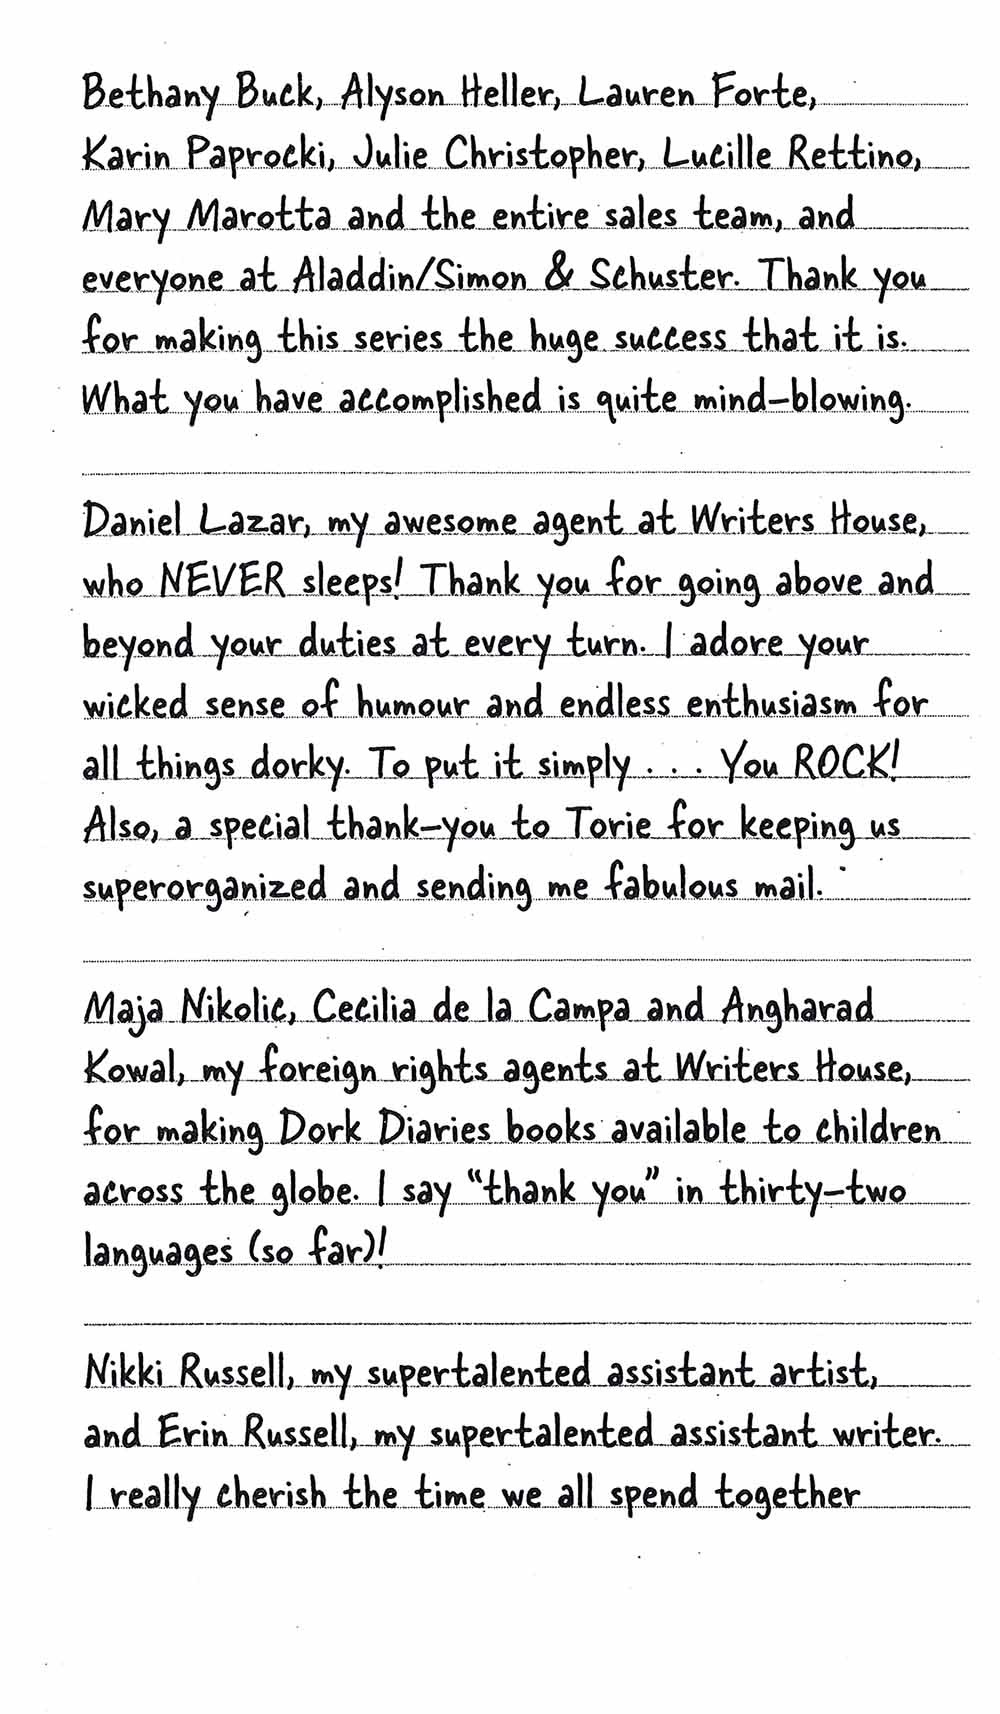 Bethany Buck, Alyson Heller, Lauren Forte,
Karin Paprocki, Julie Christopher, Lucille Rettino,
Mary Marotta and the entire sales team, and
everyone at Aladdin/Simon & Schuster. Thank you
for making this series the huge success that it is.
What you have accomplished is quite mind-blowing.
Daniel Lazar, my awesome agent at Writers House,
who NEVER sleeps! Thank you for going above and
beyond your duties at every turn. I adore your
wicked sense of humour and endless enthusiasm for
all things dorky. To put it simply . . . You ROCK!
Also, a special thank-you to Torie for keeping us
superorganized and sending me fabulous mail.
Maja Nikolic, Cecilia de la Campa and Angharad
Kowal, my foreign rights agents at Writers House,
for making Dork Diaries books available to children
across the globe. I say “thank you” in thirty-two
languages (so far)!
Nikki Russell, my supertalented assistant artist,
and Erin Russell, my supertalented assistant writer.
I really cherish the time we all spend together